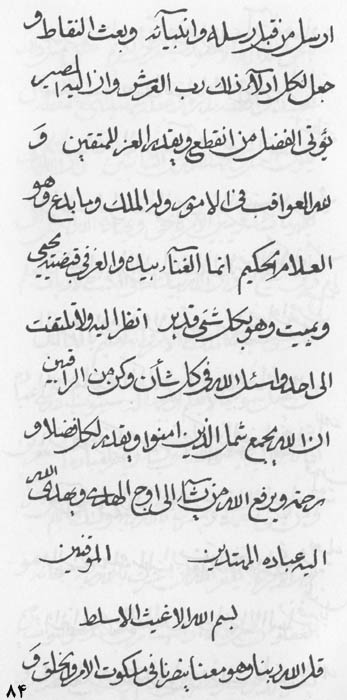 ارسل من قبل رسله وانبيآئه وبعث النقاط و
جعل لكل ادلآء ذلك رب العرش وان اليه المصير
يؤتى الفضل من انقطع ويقدر العز للمتقين و
لله العواقب فى الامور وله الملك وما بدع وهو
العلام الحكيم انما الغنآء بيده والعز فى قبضته يحيى
ويميت وهو بكل شئ قدير انظر اليه ولا تلتفت
الى احد واسئل الله فى كل شأن وكن من الراقبين
ان الله يجمع شمل الذين امنوا ويقدر لكل فضلا و
رحمة ويرفع الله من يشآء الى اوج الهاء ويهدى الله
اليه عباده المهتدين الموقنين
بسم الله الاغيث الاسلط
قل الله ربنا وهو معنا ينصرنا فى ملكوت الامر والخلق و
٨۴